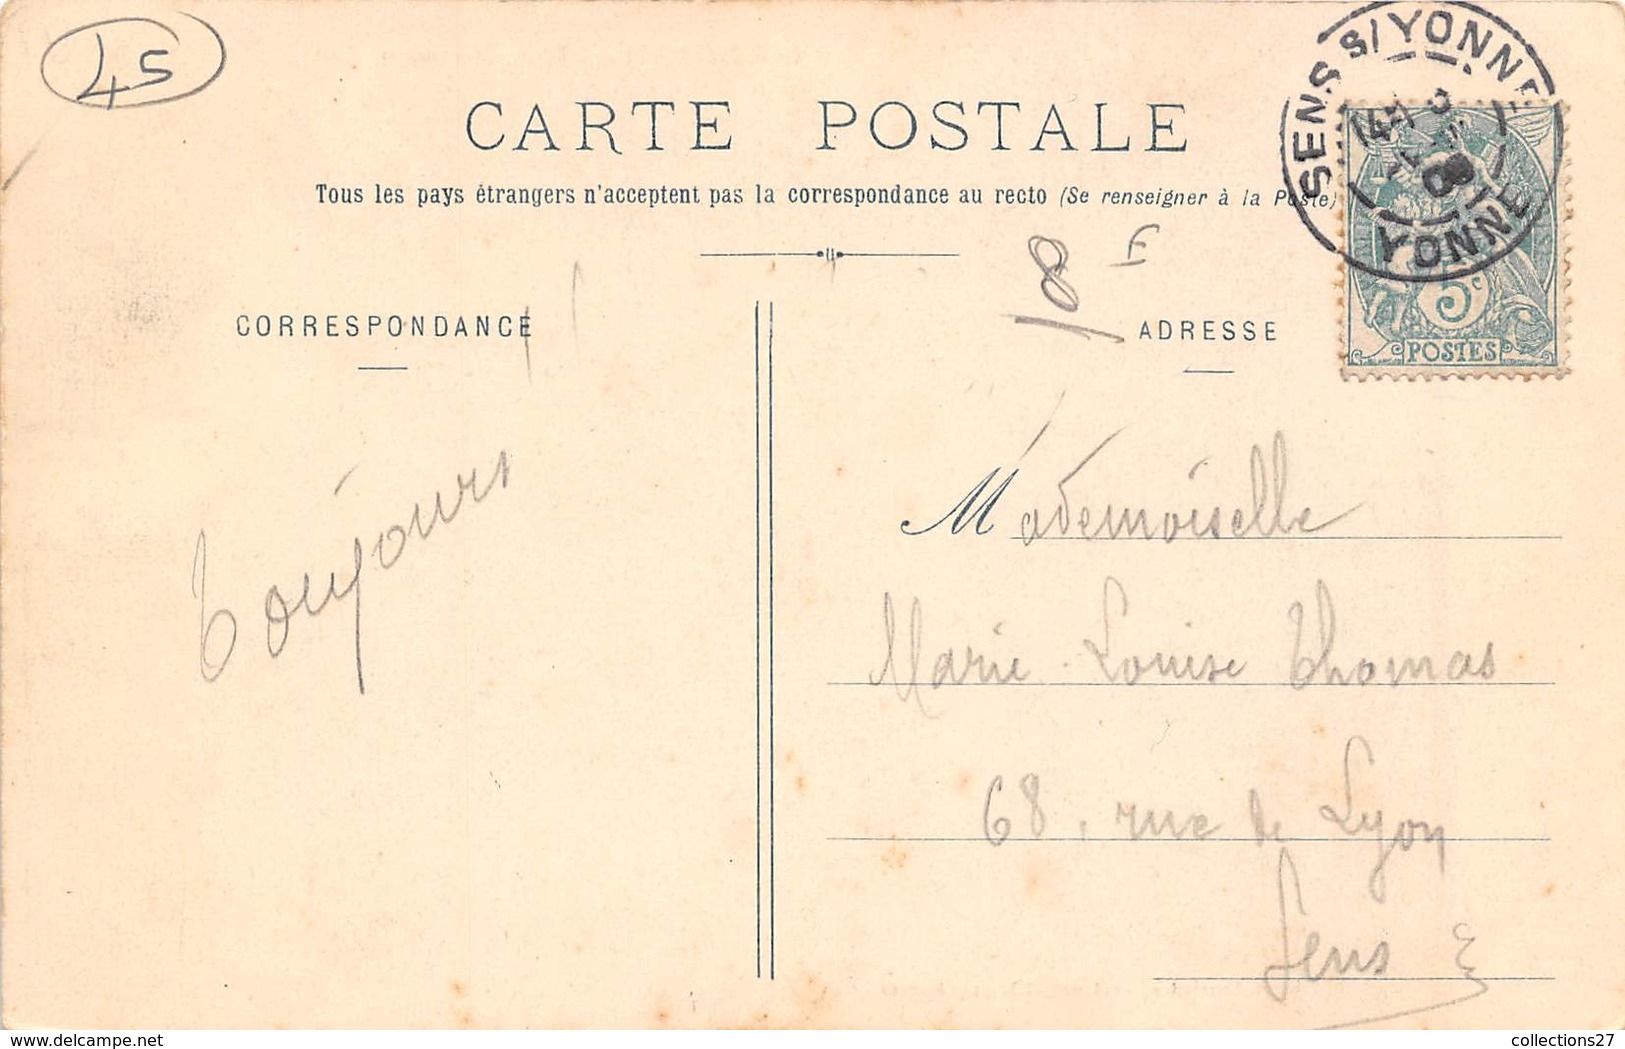 45
CARTE POSTALE
Tous les pays étrangers n'acceptent pas la correspondance au recto (Se renseigner à la Poste)
SENS S/YONNE
YONNE
5c
POSTES
18 F
CORRESPONDANCE
ADRESSE
Toujours
Mademoiselle
Marie-Louise Thomas
68, rue de Lyon
Sens
www.delcampe.net
collections27